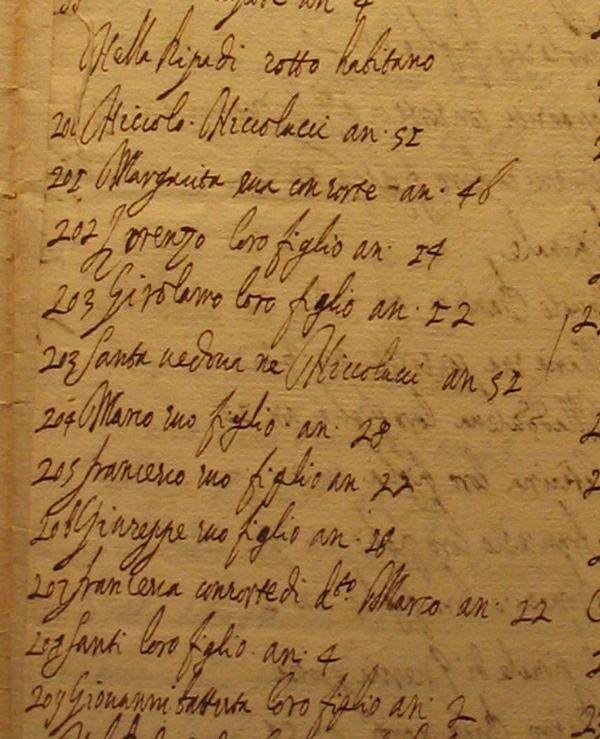 an 4
Nella Ripa di sotto habitano
200 Niccolo Niccolucci an. 51
201 Margarita sua consorte an. 46
202 Lorenzo loro figlio an. 14
203 Girolamo loro figlio an. 12
203 Santa vedova ne Niccolucci an 51
204 Marco suo figlio. an. 28
205 francesco suo figlio an 22
206 Giuseppe suo figlio an. 18
207 francesca consorte di dto Marco an. 22
208 Santi loro figlio an. 4
209 Giovanni battista loro figlio an. 2